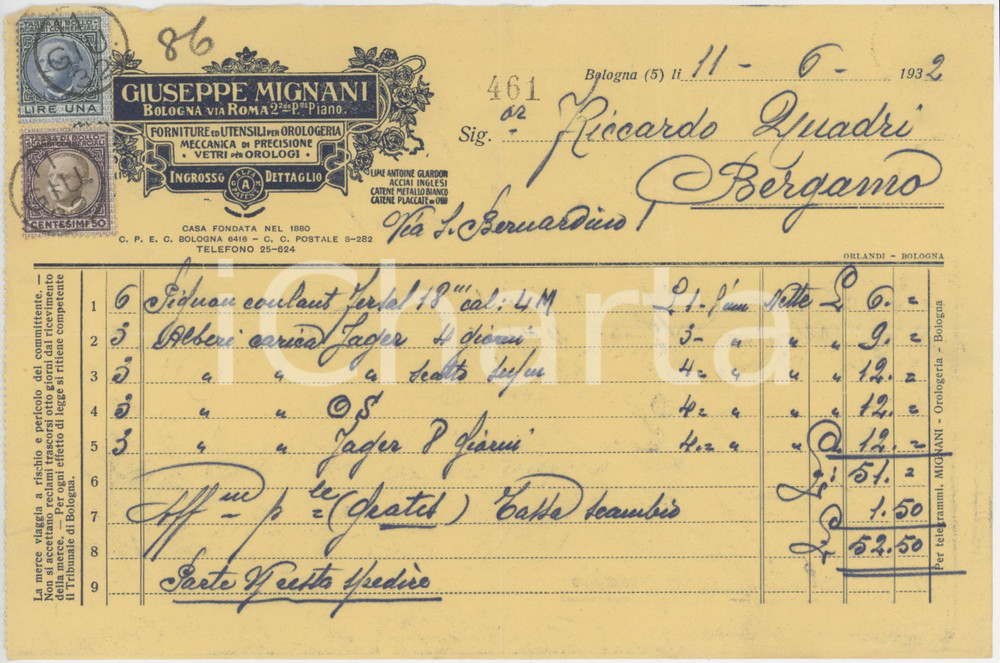 TASSA DI BOLLO
SCAMBI COMMERCIALI
LIRE UNA
TASSA DI BOLLO
SCAMBI COMMERCIALI
CENTESIMI 50
86
GIUSEPPE MIGNANI
BOLOGNA VIA ROMA 2 2do P.no Piano.
FORNITURE ED UTENSILI PER OROLOGERIA
MECCANICA DI PRECISIONE
- VETRI PER OROLOGI -
INGROSSO DETTAGLIO
ALFA
A
LIME ANTOINE GLARDON
ACCIAI INGLESI
CATENE METALLO BIANCO
CATENE PLACCATE IN ORO
CASA FONDATA NEL 1880
C. P. E. C. BOLOGNA 6416 - C. C. POSTALE 8-282
TELEFONO 25-624
461
Bologna (5) li 11 - 6 - 1932
Sig. or Riccardo Quadri
Bergamo
Via S. Bernardino
ORLANDI - BOLOGNA
1 6 Pignon coulant 18''' cal: 4 M £ 1- Nette £ 6. =
2 3 Alberi carica Jager 4 giorni 3- " " " 9. =
3 3 " " " scatto 4= " " " 12. =
4 3 " " O S 4= " " " 12. =
5 3 " " Jager 8 Giorni 4.= " " " 12. =
6 £: 51. =
7 Aff m = p le = (gratis) Tassa scambio 1.50
8 £ 52.50
9 Parte Vi resto spedire
La merce viaggia a rischio e pericolo del committente. —
Non si accettano reclami trascorsi otto giorni dal ricevimento
della merce. — Per ogni effetto di legge si ritiene competente
il Tribunale di Bologna.
Per telegrammi, MIGNANI - Orologeria - Bologna
iCharta